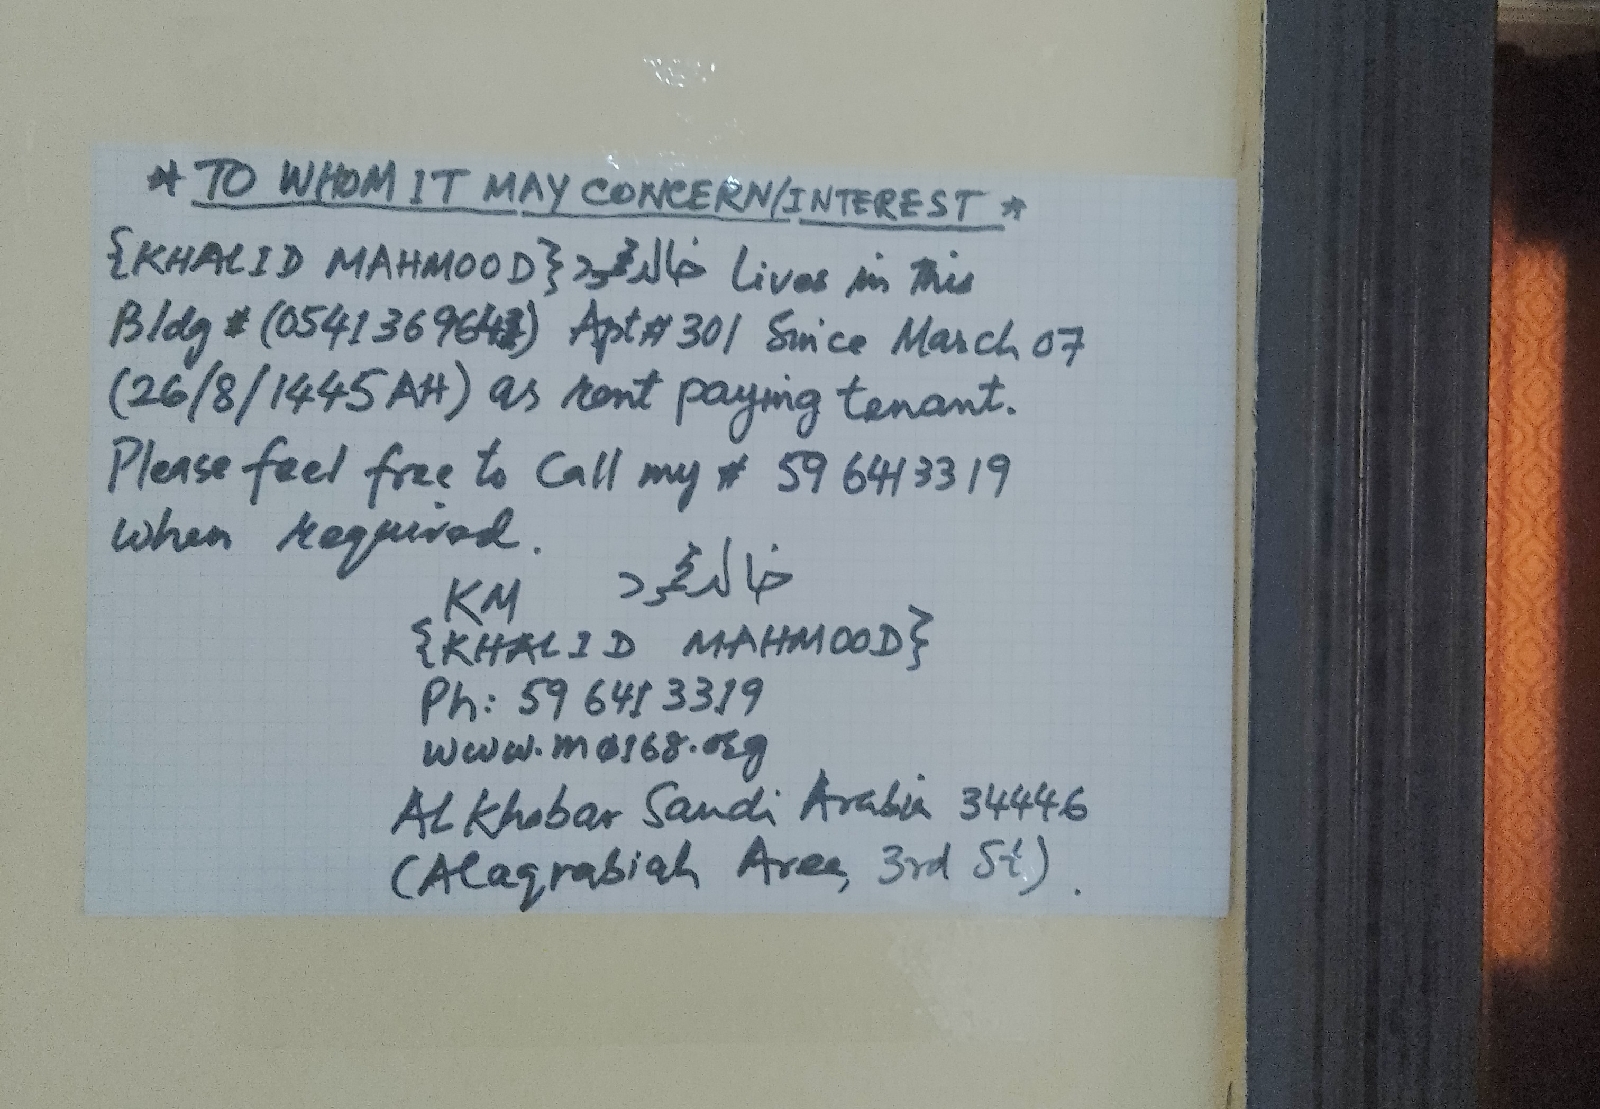 * TO WHOM IT MAY CONCERN/INTEREST *
{KHALID MAHMOOD} خالد محمود Lives in this
Bldg # (0541369641) Apt # 301 Since March 07
(26/8/1445 AH) as rent paying tenant.
Please feel free to Call my # 59 6413319
When required.
KM خالد محمود
{KHALID MAHMOOD}
Ph: 59 6413319
www.m0168.org
Al Khobar Saudi Arabia 34446
(Alaqrabiah Area, 3rd St).